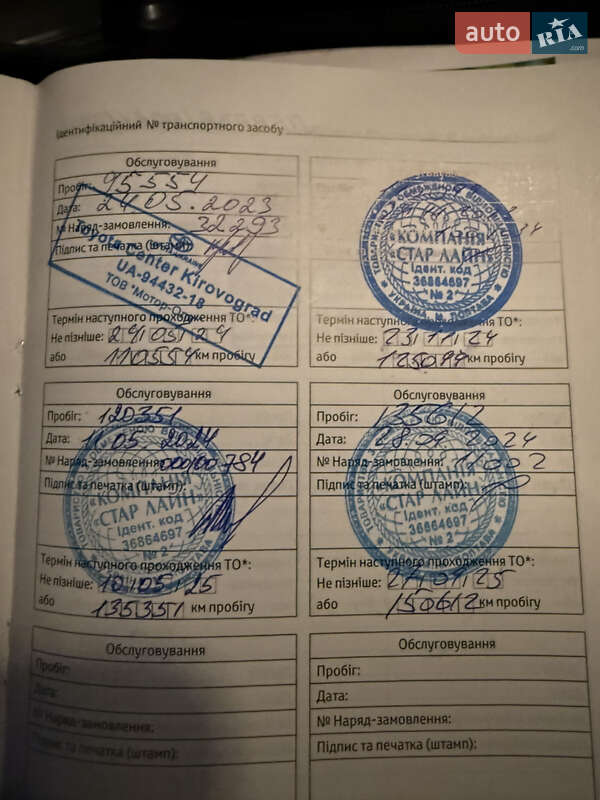 auto RIA.com
Ідентифікаційний № транспортного засобу
Обслуговування
Пробіг: 95554
Дата: 24.05.2023
№ Наряд-замовлення: 32293
Підпис та печатка (штамп):
Toyota Center Kirovograd
UA-94432-18
ТОВ "Мотор-
Термін наступного проходження ТО*:
Не пізніше: 24 05 24
або 110554 км пробігу
КОМПАНІЯ
«СТАР ЛАЙН»
Ідент. код
36864697
№ 2
УКРАЇНА, М. ПОЛТАВА
Термін наступного проходження ТО*:
Не пізніше: 23 11 24
або км пробігу
Обслуговування
Пробіг: 120351
Дата: 11.05.2024
№ Наряд-замовлення: 000/00784
Підпис та печатка (штамп):
«КОМПАНІЯ
«СТАР ЛАЙН»
Ідент. код
36864697
№ 2
Термін наступного проходження ТО*:
Не пізніше: 10 05 25
або 135351 км пробігу
Обслуговування
Пробіг: 135612
Дата: 28.09.2024
№ Наряд-замовлення: 11002
Підпис та печатка (штамп):
КОМПАНІЯ
«СТАР ЛАЙН»
Ідент. код
36864697
№ 2
Термін наступного проходження ТО*:
Не пізніше: 25
або 150612 км пробігу
Обслуговування
Пробіг:
Дата:
№ Наряд-замовлення:
Підпис та печатка (штамп):
Обслуговування
Пробіг:
Дата:
№ Наряд-замовлення:
Підпис та печатка (штамп):